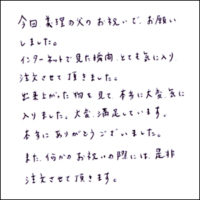 今回 義理の父のお祝いで、お願い
しました。
インターネットで見た瞬間、とても気に入り
注文させて頂きました。
出来上がった物を見て、本当に大変、気に
入りました。大変、満足しています。
本当にありがとうございました。
また、何かのお祝いの際には、是非
注文させて頂きます。